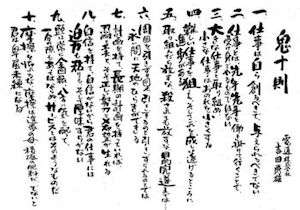 鬼十則
電通株式会社
吉田秀雄
一 仕事は自ら創るべきで 与えられるべきでない
二 仕事とは先手先手と働き掛けて行くことで
受け身でやるものではない
三 大きな仕事と取り組め
小さな仕事はおのれを小さくする
四 難しい仕事を狙え そしてこれを成し遂げるところに
進歩がある
五 取り組んだら放すな 殺されても放すな 目的完遂までは
六 周囲を引きずり回せ 引きずるのと引きずられるのとでは
永い間に天地のひらきができる
七 計画を持て 長期の計画を持っていれば
忍耐と工夫と そして正しい努力と希望が生れる
八 自信を持て 自信がないから君の仕事には
迫力も粘りも そして厚味すらがない
九 頭は常に全回転 八方に気を配って
一分の隙もあってはならぬ サービスとはそのようなものだ
十 摩擦を怖れるな 摩擦は進歩の母 積極の肥料だ でないと
君は卑屈未練になる